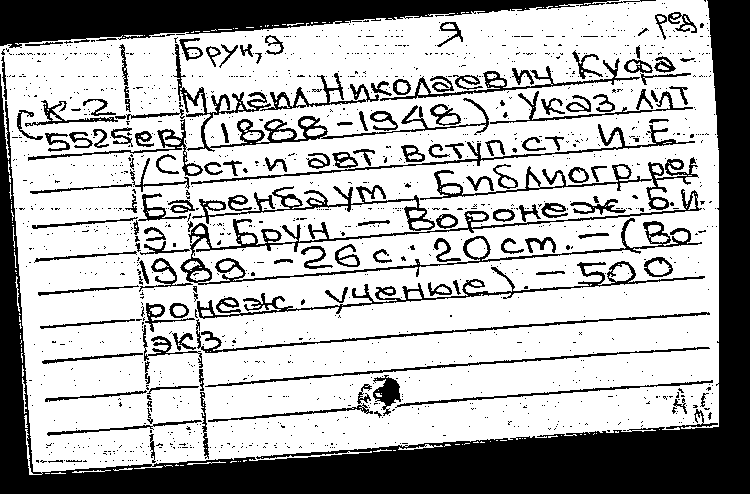 Брун, Э Я ред.
Михаил Николаевич Куфа-
К-2
5525ев (1888-1948): Указ. лит
/Сост. и авт. вступ. ст. И. Е.
Баренбаум; Библиогр. ред
Э. Я. Брун. - Воронеж: Б.И
1989. - 26 с.; 20 см. - (Во-
ронеж. ученые). - 500
экз.